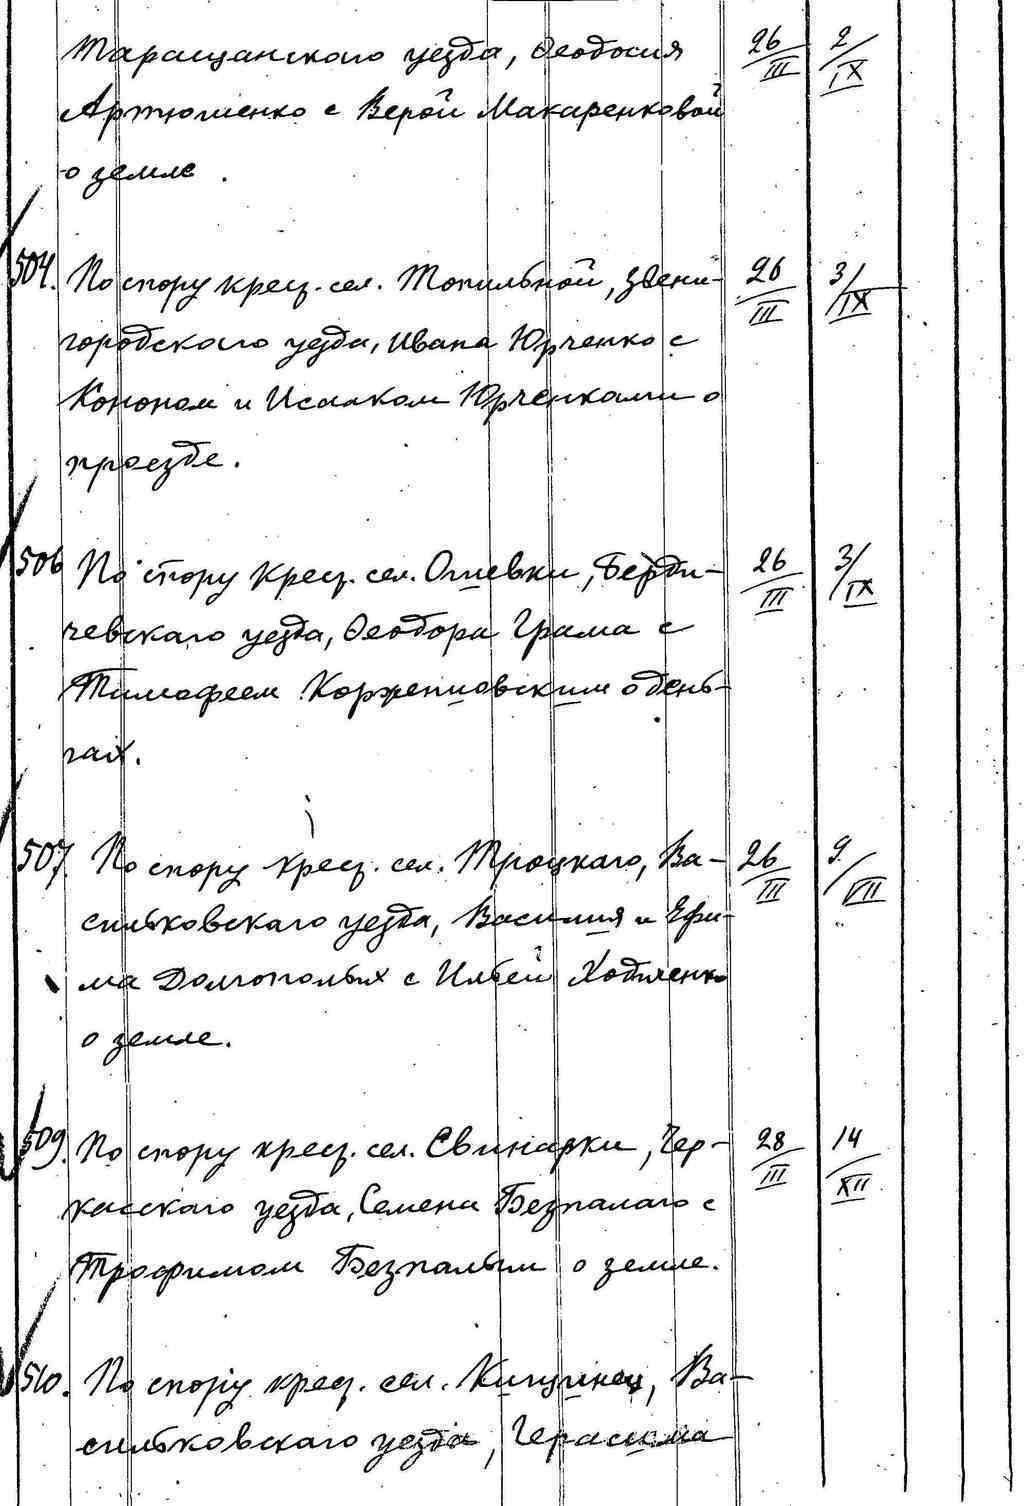 Таращанского уезда, Феодосия 26/III 2/IX
Артюшенко с Верой Макаренковой
о земле.
504. По спору крест. сел. Топильной, Звени- 26/III 3/IX
городского уезда, Ивана Юрченко с
Кононом и Исааком Юрченками о
проезде.
506 По спору крест. сел. Огиевки, Берди- 26/III 3/IX
чевскаго уезда, Феодора Грама с
Тимофеем Коржениовским о день-
гах.
507. По спору крест. сел. Троцкаго, Ва- 26/III 9/VII
сильковскаго уезда, Василия и Ефи-
ма Долгополых с Ильей Ходченко
о земле.
509. По спору крест. сел. Свинарки, Чер- 28/III 14/XII
касскаго уезда, Семена Безпалаго с
Трофимом Безпалым о земле.
510. По спору крест. сел. Кищинец, Ва-
сильковскаго уезда, Герасима